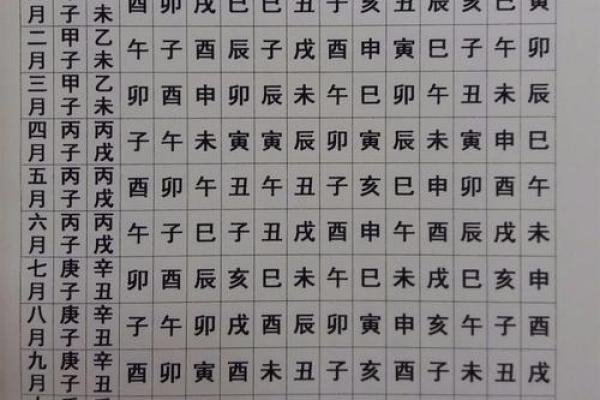 月 子 未 酉 卯 戌 巳 巳 丑 子 亥 丑 辰 亥 巳 寅
二月 甲子 乙未 午 子 酉 辰 子 戌 酉 申 寅 巳 子 午 卯
三月 甲子 乙未 卯 酉 申 卯 辰 未 午 巳 卯 午 丑 未 辰
四月 丙子 丙戌 子 午 未 寅 寅 辰 卯 寅 辰 未 寅 申 巳
五月 丙子 丙戌 酉 卯 午 丑 午 丑 子 亥 巳 申 卯 酉 午
六月 丙子 丙戌 午 子 巳 子 丑 戌 酉 申 午 酉 辰 戌 未
七月 庚子 辛丑 卯 酉 辰 亥 巳 未 午 巳 未 戌 巳 亥 申
八月 庚子 辛丑 子 午 卯 戌 酉 辰 卯 寅 申 亥 午 子 酉
九月 庚子 辛丑 酉 卯 寅 酉 未 丑 子 亥 酉 子 未 丑 戌